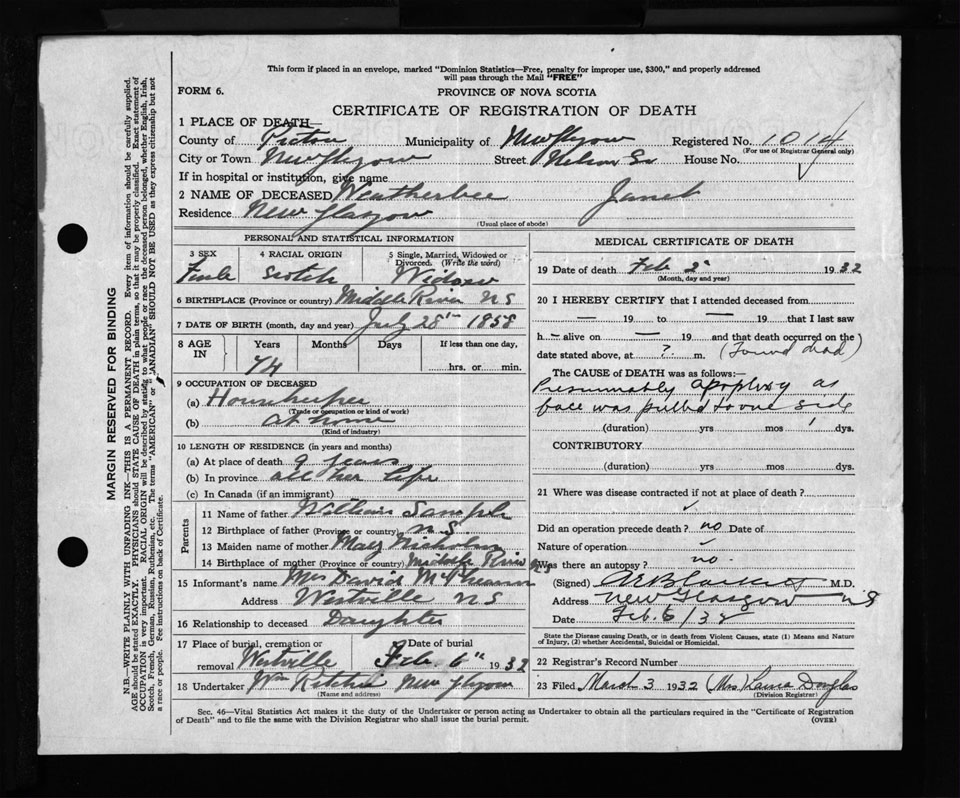 This form if placed in an envelope, marked "Dominion Statistics—Free, penalty for improper use, $300," and properly addressed
will pass through the Mail "FREE"
FORM 6.
PROVINCE OF NOVA SCOTIA
CERTIFICATE OF REGISTRATION OF DEATH
1 PLACE OF DEATH—
County of Pictou Municipality of New Glasgow Registered No. 1014
(For use of Registrar General only)
City or Town New Glasgow Street Nelson House No.
If in hospital or institution, give name
2 NAME OF DECEASED Weatherbee Janet
Residence New Glasgow
(Usual place of abode)
PERSONAL AND STATISTICAL INFORMATION
3 SEX
4 RACIAL ORIGIN Scotch
5 Single, Married, Widowed or
Divorced. (Write the word)
Widow
6 BIRTHPLACE (Province or country) Middle River N S
7 DATE OF BIRTH (month, day and year) July 28th 1858
8 AGE
IN
Years Months Days If less than one day,
74 hrs. or min.
9 OCCUPATION OF DECEASED
(a) Housekeeper
(Trade or occupation or kind of work)
(b) at home
(Kind of industry)
10 LENGTH OF RESIDENCE (in years and months)
(a) At place of death 9 years
(b) In province all her life
(c) In Canada (if an immigrant)
Parents
11 Name of father William Sample
12 Birthplace of father (Province or country) N S
13 Maiden name of mother Mary Nicholson
14 Birthplace of mother (Province or country) Middle River NS
15 Informant's name Mrs David
Address Westville N S
16 Relationship to deceased Daughter
17 Place of burial, cremation or
removal Westville
Date of burial
Feb. 6th 1932
18 Undertaker Wm Ritchie New Glasgow
(Name and address)
MEDICAL CERTIFICATE OF DEATH
19 Date of death Feb 1932
(Month, day and year)
20 I HEREBY CERTIFY that I attended deceased from
— 19 to — 19 that I last saw
h— alive on — 19 and that death occurred on the
date stated above, at ? m. (Found dead)
The CAUSE OF DEATH was as follows:
Presumably apoplexy as
face was pulled to one side
(duration) yrs mos dys.
CONTRIBUTORY
(duration) yrs mos dys.
21 Where was disease contracted if not at place of death?
Did an operation precede death? no Date of
Nature of operation
Was there an autopsy? no.
(Signed) M.D.
Address New Glasgow N S
Date Feb. 6/32
State the Disease causing Death, or in death from Violent Causes, state (1) Means and Nature
of Injury, (2) whether Accidental, Suicidal or Homicidal.
22 Registrar's Record Number
23 Filed March 3 1932 (Mrs) Laura Douglas
(Division Registrar)
Sec. 46—Vital Statistics Act makes it the duty of the Undertaker or person acting as Undertaker to obtain all the particulars required in the "Certificate of Registration
of Death" and to file the same with the Division Registrar who shall issue the burial permit. (OVER)
MARGIN RESERVED FOR BINDING
N.B.—WRITE PLAINLY WITH UNFADING INK—THIS IS A PERMANENT RECORD. Every item of information should be carefully supplied.
AGE should be stated EXACTLY. PHYSICIANS should STATE CAUSE OF DEATH in plain terms, so that it may be properly classified. Exact statement of
OCCUPATION is very important. RACIAL ORIGIN will be described by stating to what people or race the deceased person belonged, whether English, Irish,
Scotch, French, German, Russian, Ruthenian, etc. The terms "AMERICAN" or "CANADIAN" SHOULD NOT BE USED as they express citizenship but not
a race or people. See instructions on back of Certificate.